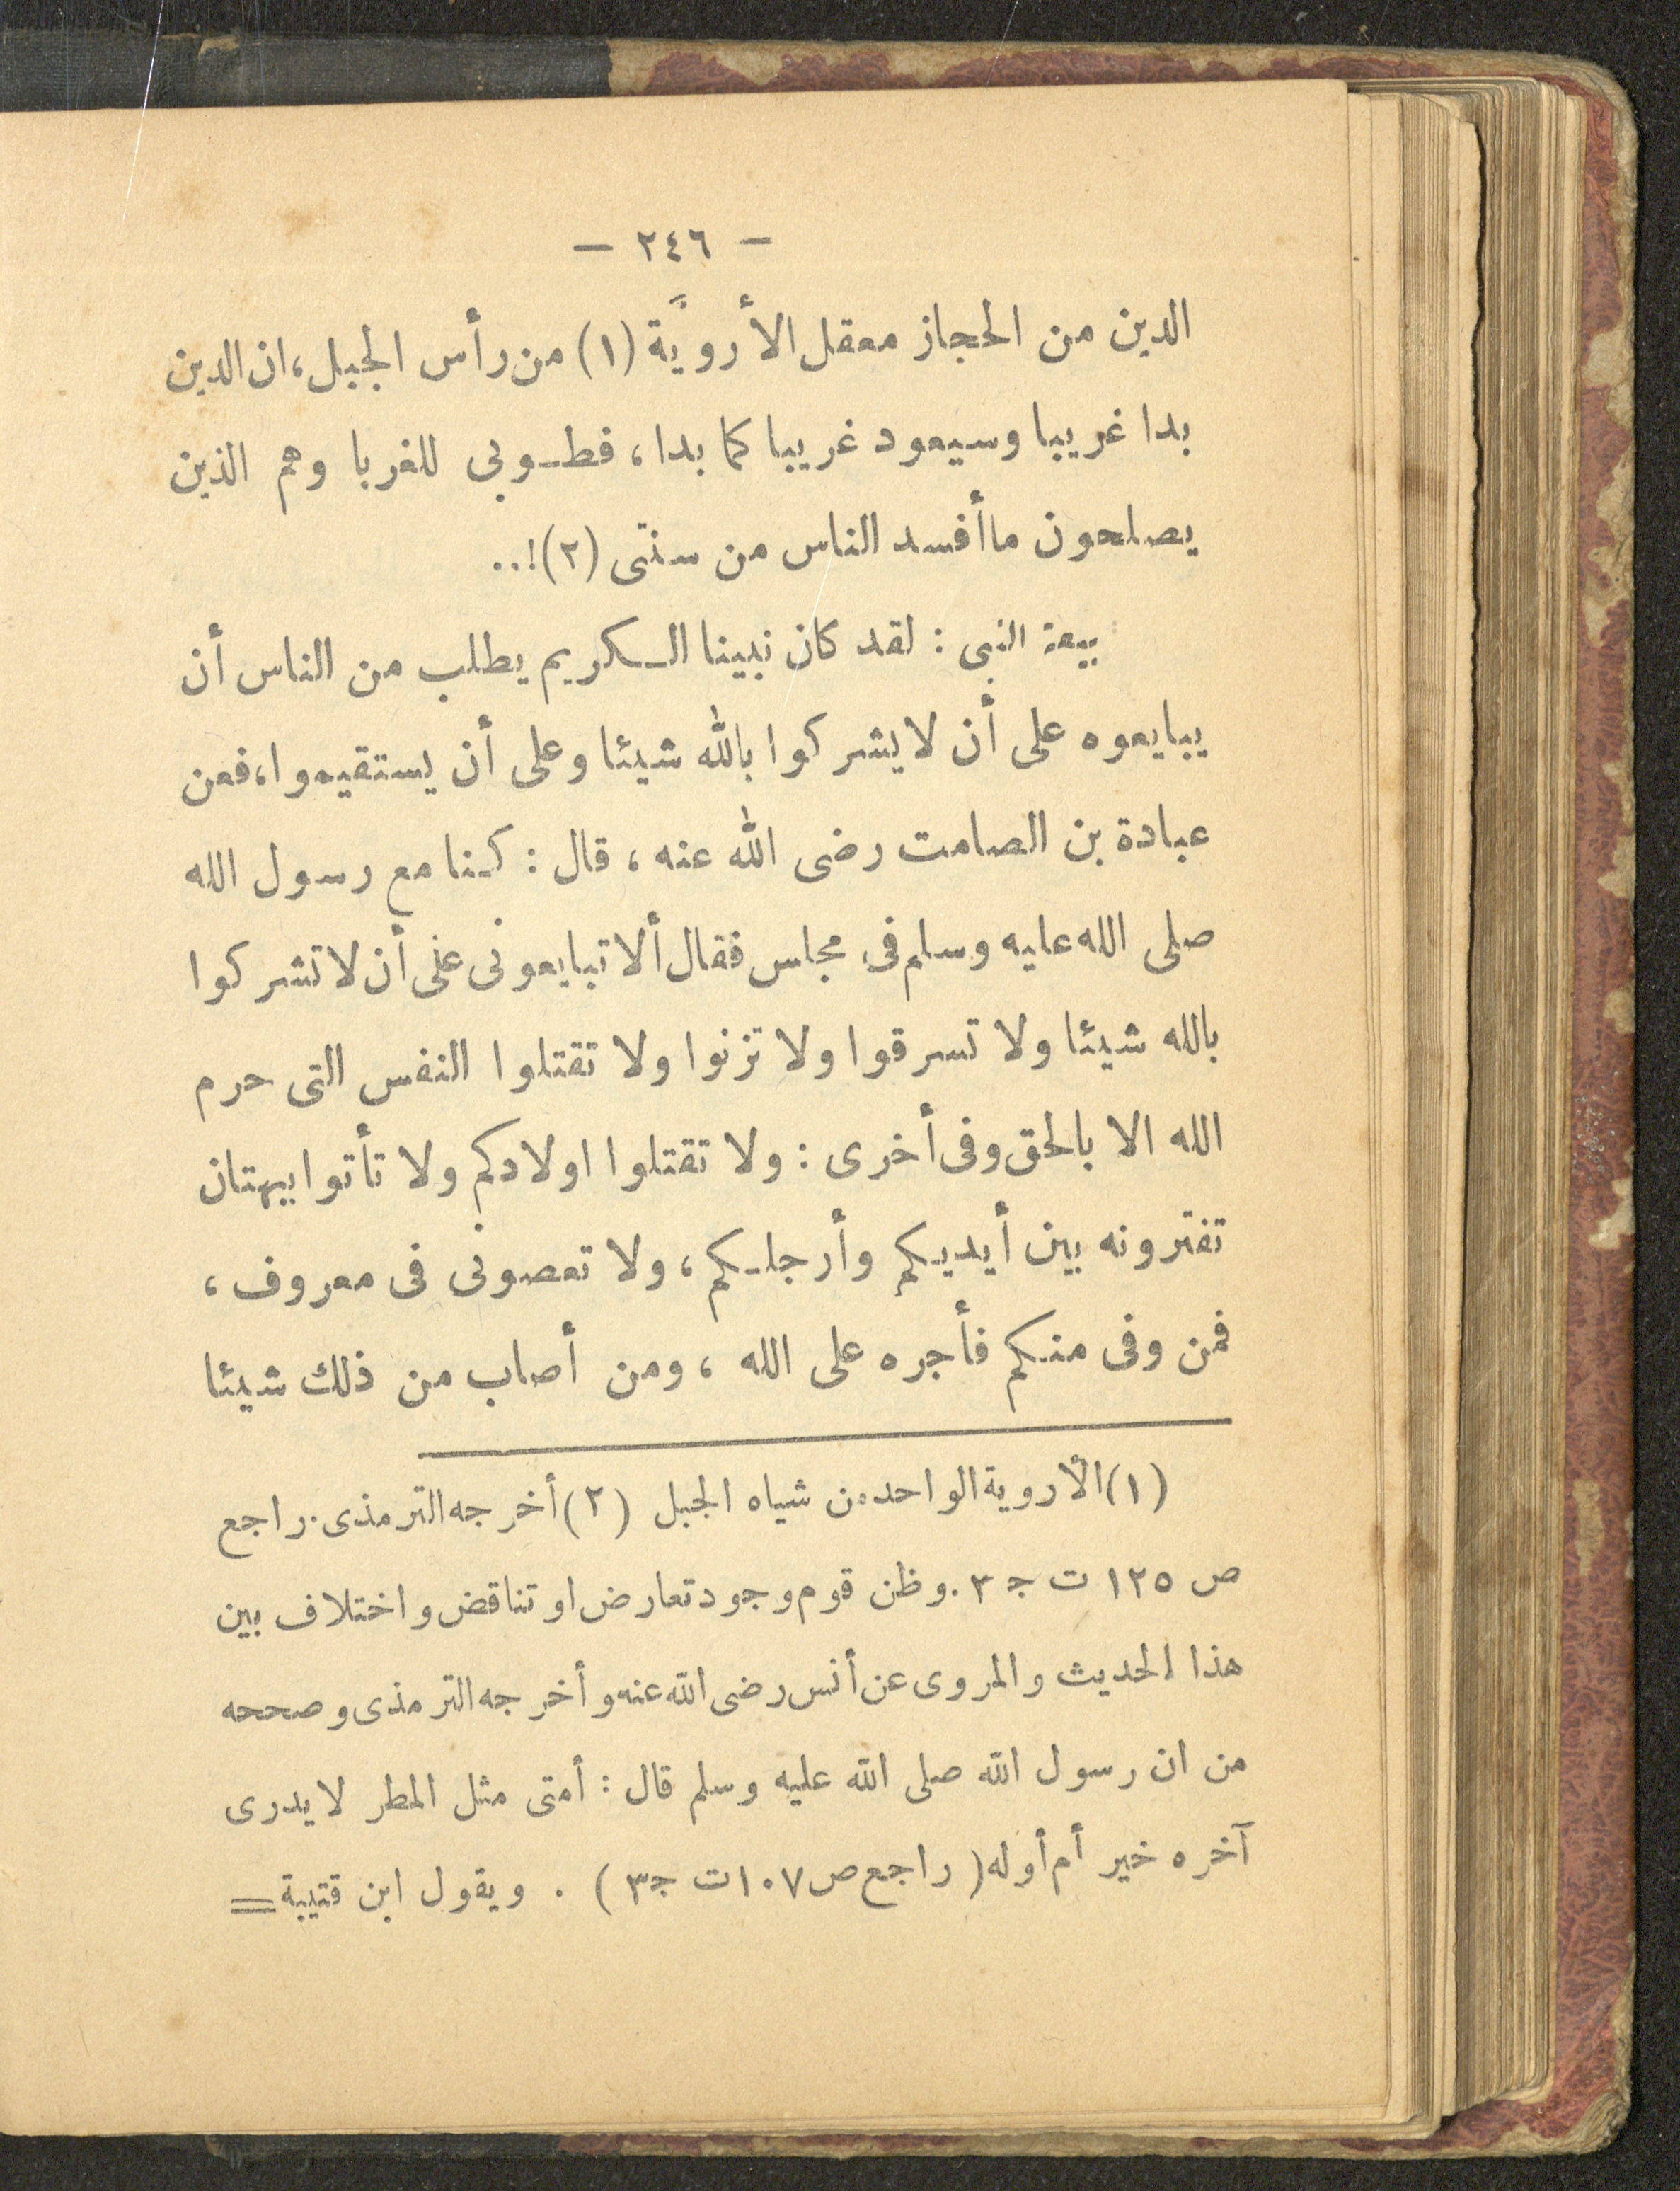 — ٢٤٦ —
الدين من الحجاز معقل الأرويَّة (١) من رأس الجبل، ان الدين
بدا غريبا وسيعود غريبا كما بدا، فطوبى للغربا وهم الذين
يصلحون ما أفسد الناس من سنتى (٢)!..
بيعة النبى : لقد كان نبينا الكريم يطلب من الناس أن
يبايعوه على أن لا يشركوا بالله شيئا وعلى أن يستقيموا، فعن
عبادة بن الصامت رضى الله عنه ، قال : كنا مع رسول الله
صلى الله عليه وسلم فى مجلس فقال ألا تبايعونى على أن لا تشركوا
بالله شيئا ولا تسرقوا ولا تزنوا ولا تقتلوا النفس التى حرم
الله الا بالحق وفى أخرى : ولا تقتلوا اولادكم ولا تأتوا ببهتان
تفترونه بين أيديكم وأرجلكم ، ولا تعصونى فى معروف ،
فمن وفى منكم فأجره على الله ، ومن أصاب من ذلك شيئا
(١) الأروية الواحد من شياه الجبل (٢) أخرجه الترمذى. راجع
ص ١٢٥ ت ج ٣. وظن قوم وجود تعارض او تناقض واختلاف بين
هذا الحديث والمروى عن أنس رضى الله عنه وأخرجه الترمذى وصححه
من ان رسول الله صلى الله عليه وسلم قال : أمتى مثل المطر لا يدرى
آخره خير أم أوله ( راجع ص ١٠٧ ت ج ٣ ) . ويقول ابن قتيبة =